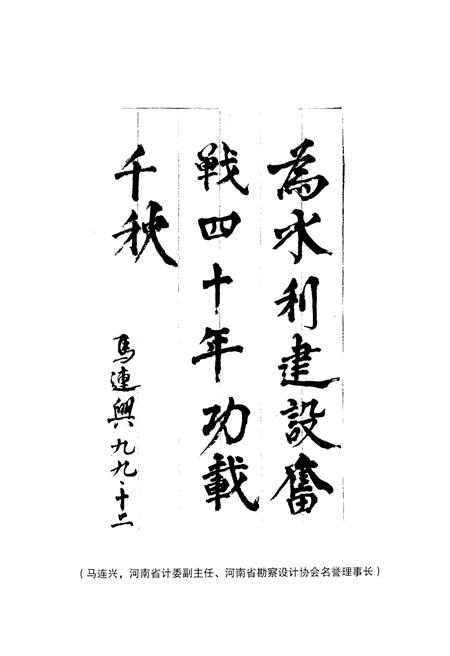 為水利建設奮
戰四十年功載
千秧
馬連興九九·十二
（马连兴，河南省计委副主任、河南省勘察设计协会名誉理事长）